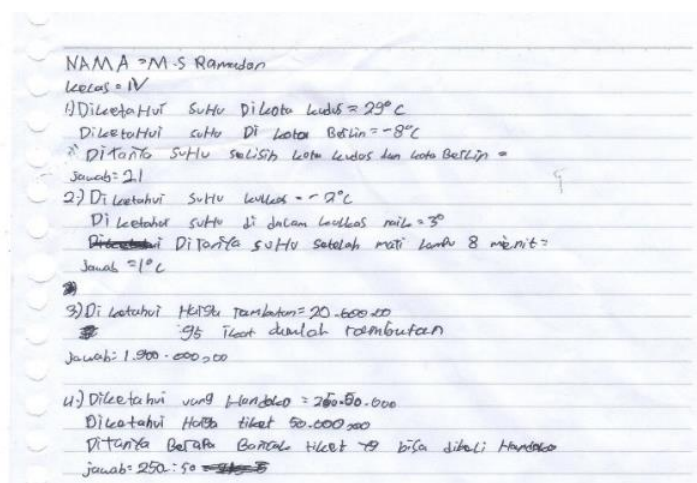 NAMA = M.S Ramadan
kelas = IV
1) Diketahui suhu Dikota kudus = 29°C
Diketahui suhu Di kota Berlin = -8°C
Ditanya suhu selisih kota kudus dan kota Berlin =
Jawab = 21
2.) Diketahui suhu kulkas = -2°C
Diketahui suhu di dalam kulkas naik = 3°
Ditanya suhu setelah mati lampu 8 menit =
Jawab = 1°C
3) Diketahui Harga rambutan = 20.000.00
95 ikat jumlah rambutan
Jawab = 1.900.000,00
4.) Diketahui uang Handoko =
Diketahui Harga tiket 50.000,00
Ditanya Berapa Banyak tiket yg bisa dibeli Handoko
jawab = 250 : 50